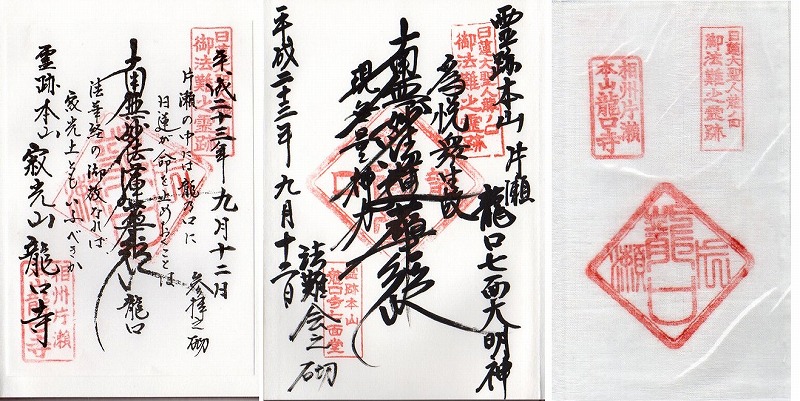 平成二十三年九月十二日
参拝之砌
片瀬の中には龍の口に
日蓮が命を止めおくことは
法華経の御故なれば
寂光土ともいふべきか
南無妙法蓮華経
龍口
霊跡本山 寂光山 龍口寺
日蓮大聖人龍ノ口
御法難之霊跡
相州片瀬
本山龍口寺
霊跡本山 片瀬 龍口七面大明神
為悦衆生故
南無妙法蓮華経
現無量神力
平成二十三年九月十二日
法難会之砌
日蓮大聖人龍ノ口
御法難之霊跡
霊跡本山
龍口寺七面堂
日蓮大聖人龍ノ口
御法難之霊跡
相州片瀬
本山龍口寺
片瀬龍口